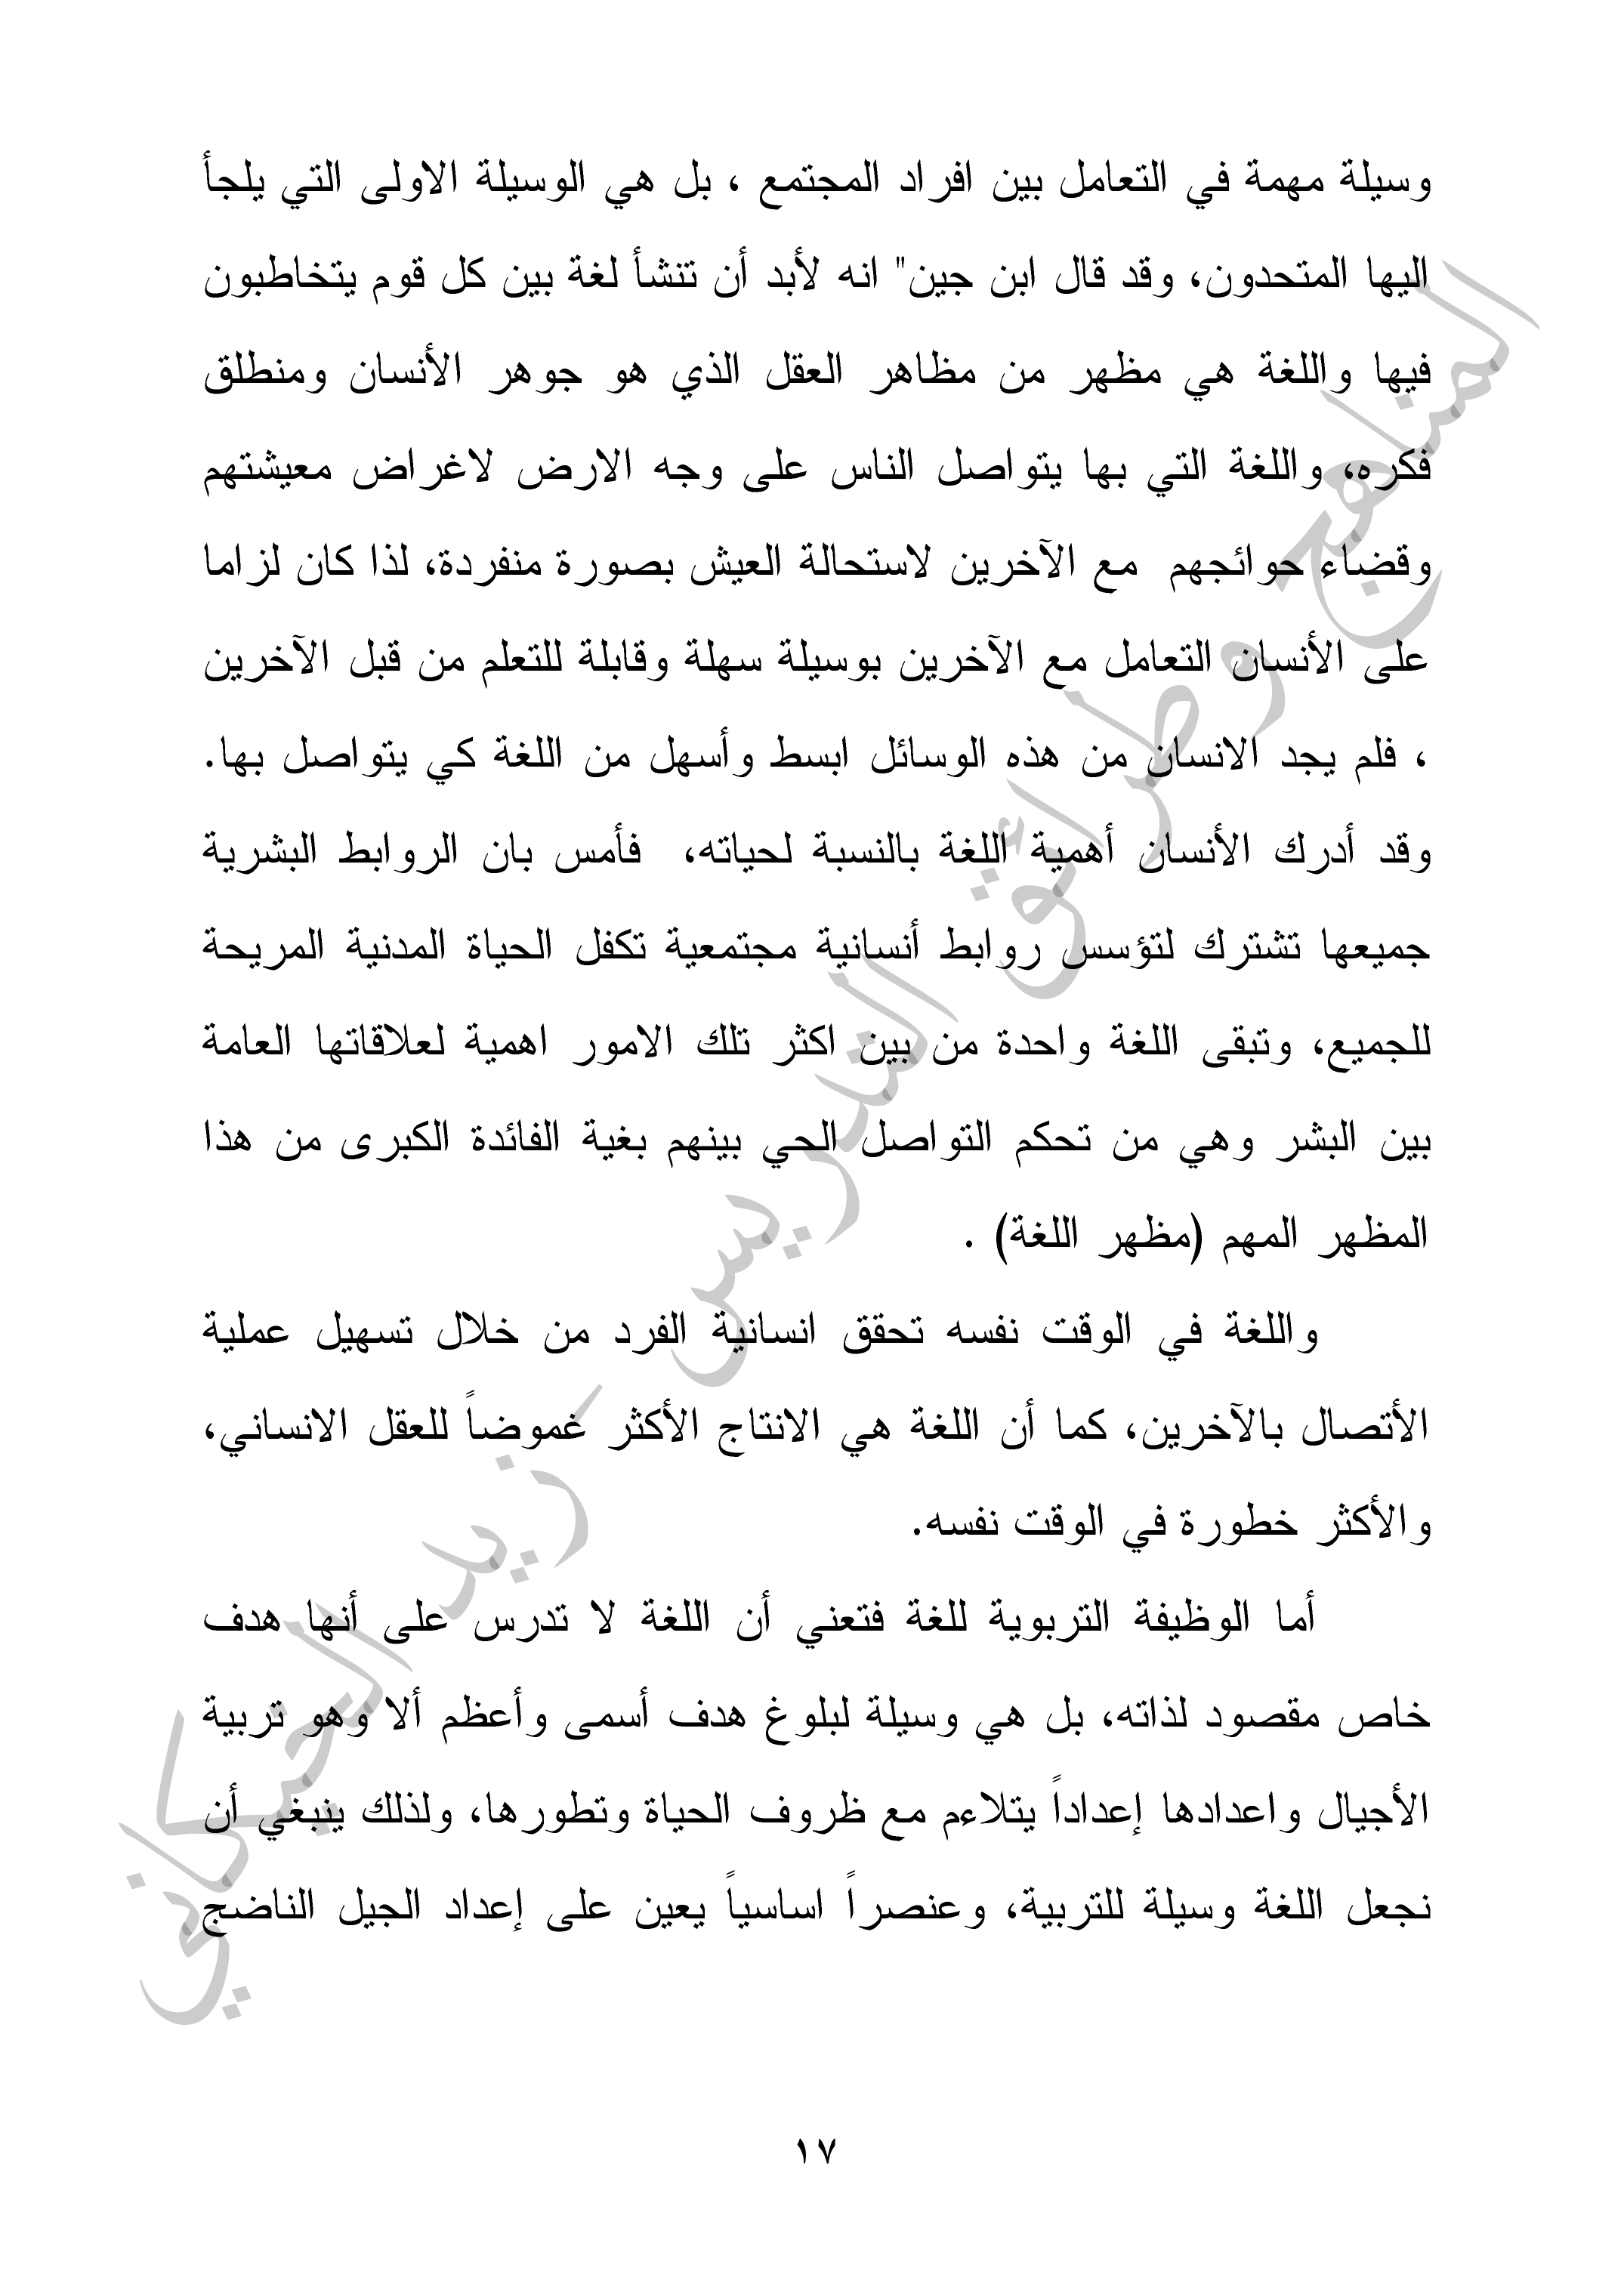 وسيلة مهمة في التعامل بين افراد المجتمع ، بل هي الوسيلة الاولى التي يلجأ
اليها المتحدون، وقد قال ابن جين" انه لأبد أن تنشأ لغة بين كل قوم يتخاطبون
فيها واللغة هي مظهر من مظاهر العقل الذي هو جوهر الأنسان ومنطلق
فكره، واللغة التي بها يتواصل الناس على وجه الارض لاغراض معيشتهم
وقضاء حوائجهم مع الآخرين لاستحالة العيش بصورة منفردة، لذا كان لزاما
على الأنسان التعامل مع الآخرين بوسيلة سهلة وقابلة للتعلم من قبل الآخرين
، فلم يجد الانسان من هذه الوسائل ابسط وأسهل من اللغة كي يتواصل بها.
وقد أدرك الأنسان أهمية اللغة بالنسبة لحياته، فأمس بان الروابط البشرية
جميعها تشترك لتؤسس روابط أنسانية مجتمعية تكفل الحياة المدنية المريحة
للجميع، وتبقى اللغة واحدة من بين اكثر تلك الامور اهمية لعلاقاتها العامة
بين البشر وهي من تحكم التواصل الحي بينهم بغية الفائدة الكبرى من هذا
المظهر المهم (مظهر اللغة) .
واللغة في الوقت نفسه تحقق انسانية الفرد من خلال تسهيل عملية
الأتصال بالآخرين، كما أن اللغة هي الانتاج الأكثر غموضاً للعقل الانساني،
والأكثر خطورة في الوقت نفسه.
أما الوظيفة التربوية للغة فتعني أن اللغة لا تدرس على أنها هدف
خاص مقصود لذاته، بل هي وسيلة لبلوغ هدف أسمى وأعظم ألا وهو تربية
الأجيال واعدادها إعداداً يتلاءم مع ظروف الحياة وتطورها، ولذلك ينبغي أن
نجعل اللغة وسيلة للتربية، وعنصراً اساسياً يعين على إعداد الجيل الناضج
المناهج وطرائق التدريس - زيد الخيكاني
١٧